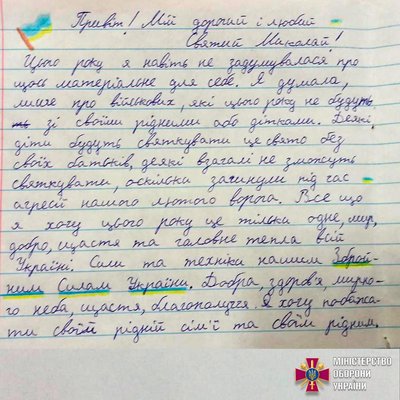 Привіт! Мій дорогий і любий
Святий Миколай!
Цього року я навіть не задумувалася про
щось матеріальне для себе. Я думала,
лише про військових, які цього року не будуть
зі своїми рідними або дітками. Деякі
діти будуть святкувати це свято без
своїх батьків, деякі взагалі не зможуть
святкувати, оскільки загинули під час
агресії нашого лютого ворога. Все що
я хочу цього року це тільки одне, мир,
добро, щастя та головне тепла всій
Україні. Сили та техніки нашим Зброй-
ним Силам України. Добра, здоров'я, мирно-
го неба, щастя, благополуччя. Я хочу побажа-
ти своїй рідній сім'ї та своїм рідним.
МІНІСТЕРСТВО
ОБОРОНИ
УКРАЇНИ